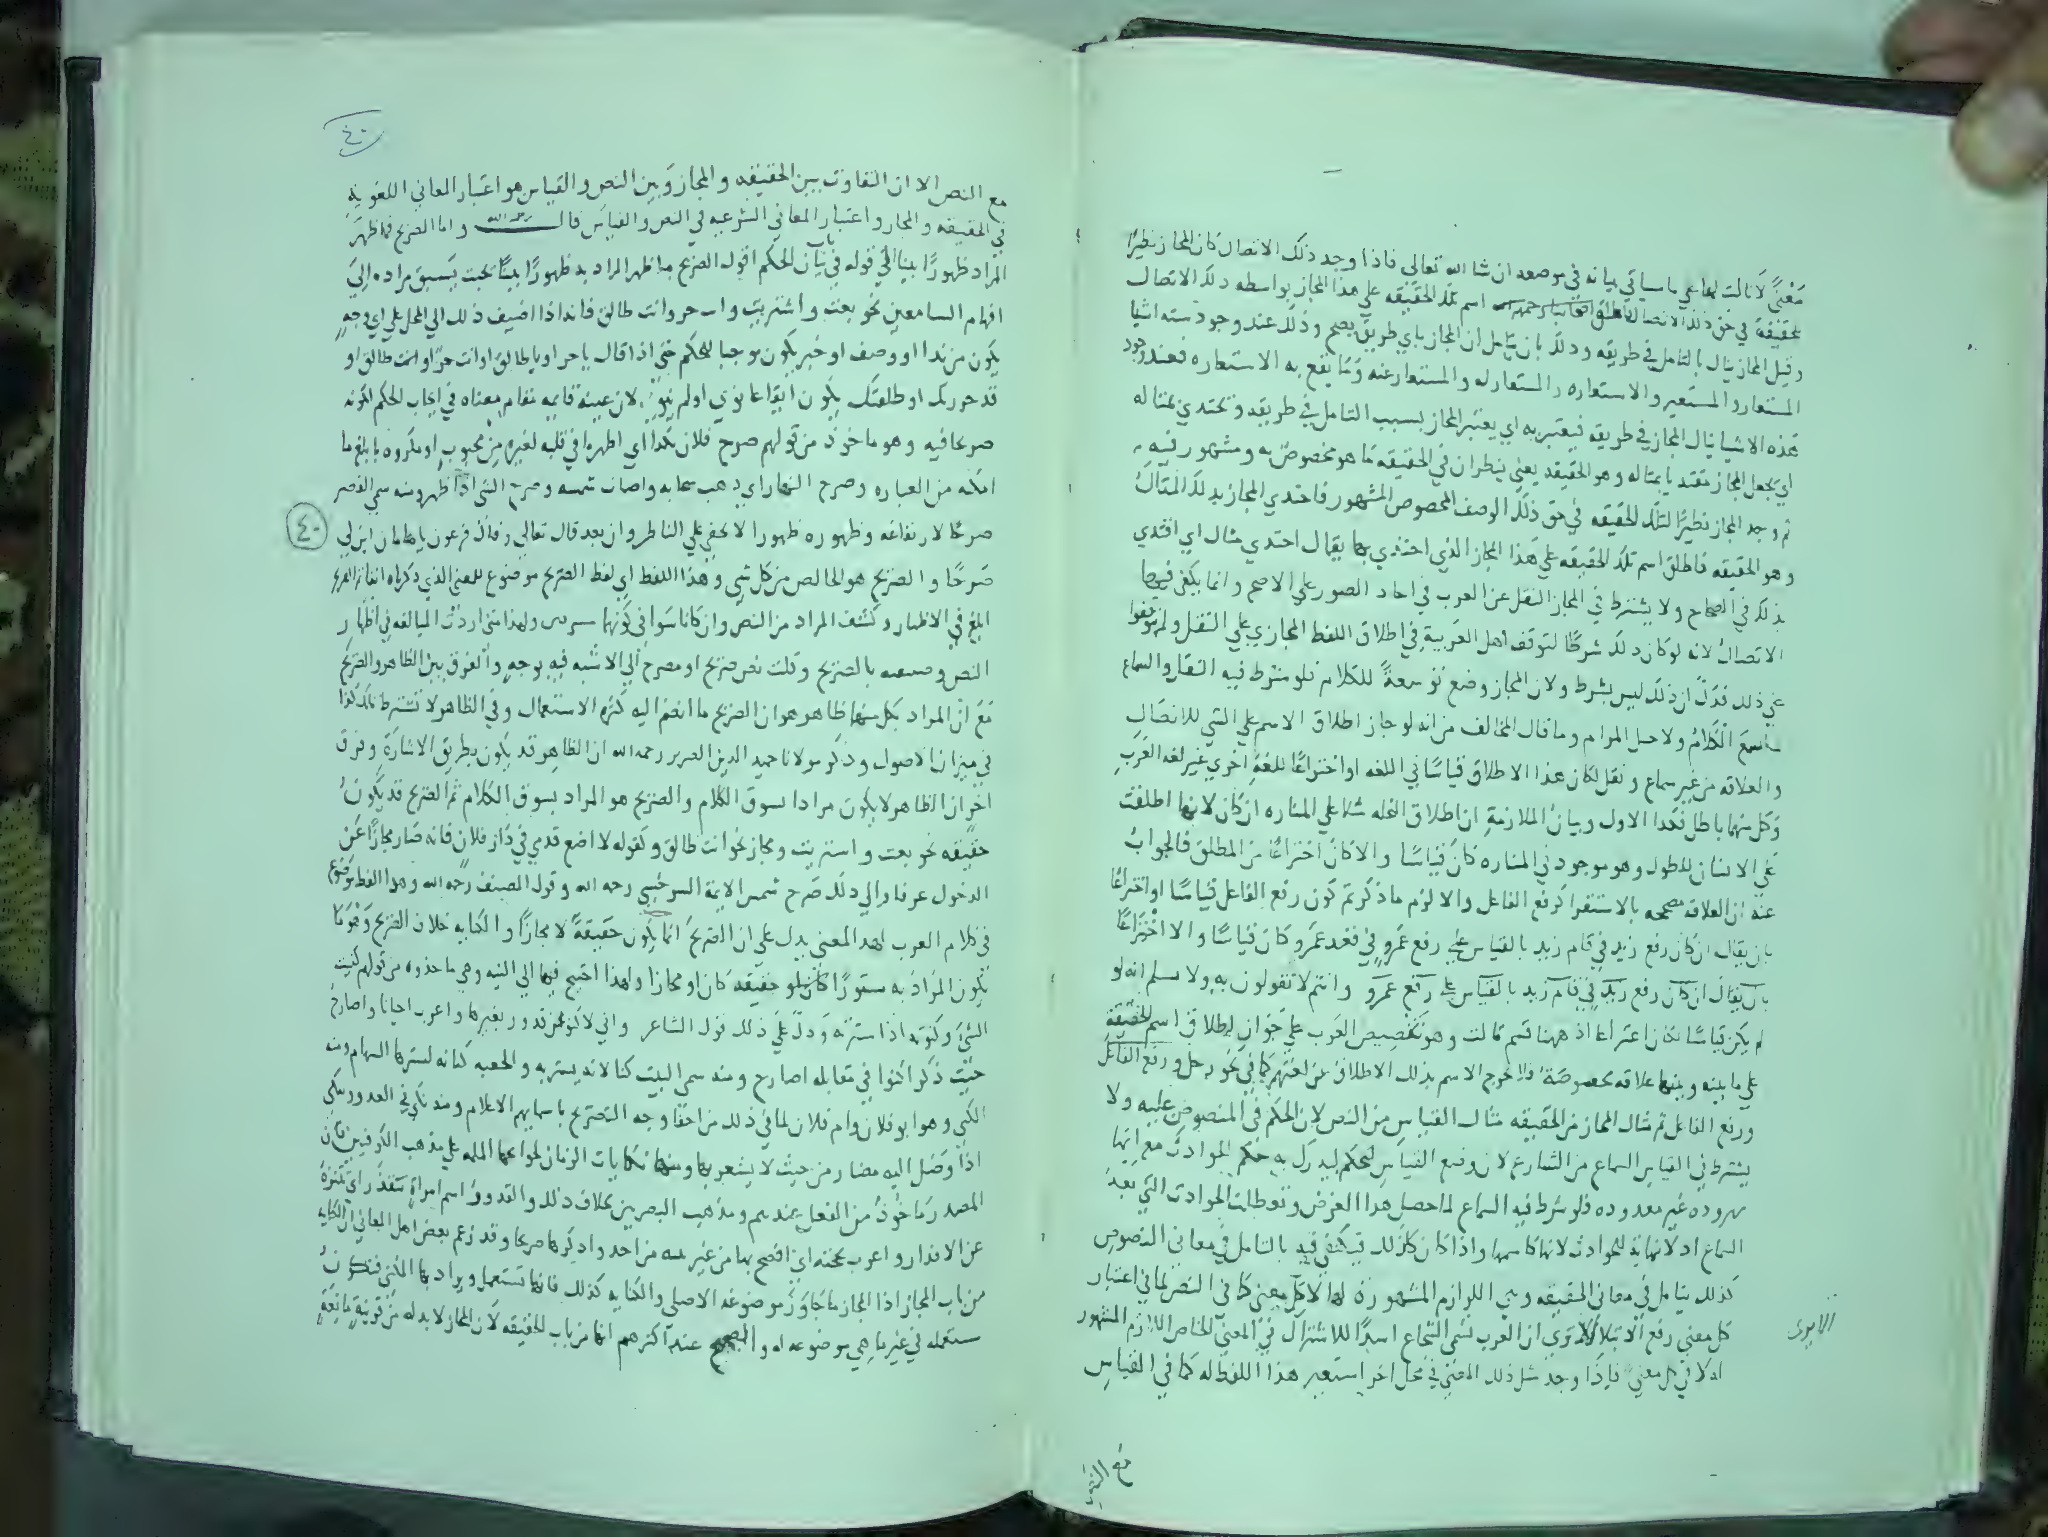 معنى لا ثالث لهما على ما سياتي بيانه في موضعه ان شا الله تعالى فاذا وجد ذلك الاتصال كان المجاز نظيرًا
للحقيقة في حق ذلك الاتصال اسم تلك الحقيقه على هذا المجاز بواسطه ذلك الاتصال
وقيل المجاز ينال بالتامل في طريقه وذلك بان يتامل ان المجاز باي طريق يصح وذلك عند وجود سته اشيا
المستعار والمستعير والاستعاره والمستعار له والمستعار عنه وما يقع به الاستعاره فعند وجود
هذه الاشيا ينال المجاز في طريقه فيعتبر به اي يعتبر المجاز بسبب التامل في طريقه ويحتدي بمثاله
اي يجعل المجاز مقتديا بمثاله وهو الحقيقه يعني ينظر ان في الحقيقه ما هو مخصوص به ومشهور فيه
ثم وجد المجاز نظيرًا لتلك الحقيقه في حق ذلك الوصف المخصوص المشهور فاحتدي المجاز بذلك المثال
وهو الحقيقه فاطلق اسم تلك الحقيقه على هذا المجاز الذي احتذي بها يقال احتدي مثال اي اقتدي
بذلك في الصحاح ولا يشترط في المجاز النقل عن العرب في احاد الصور على الاصح وانما يكفي فيها
الاتصال لانه لو كان ذلك شرطًا لتوقف اهل العربية في اطلاق اللفظ المجازي على النقل ولم يتوقفوا
على ذلك فدل ان ذلك ليس بشرط ولان المجاز وضع توسعةً للكلام فلو شرط فيه النقل والسماع
ما اتسع الكلام ولا حصل المرام وما قال المخالف من انه لو جاز اطلاق الاسم على الشي للاتصال
والعلاقه من غير سماع ونقل لكان هذا الاطلاق قياسًا في اللغه او اختراعًا للغةٍ اخرى غير لغه العرب
وكل منهما باطل فكذا الاول وبيان الملازمة ان اطلاق النخله مثلا على المناره ان كان لانها اطلقت
على الانسان للطول وهو موجود في المناره كان قياسًا والا كان اختراعًا من المطلق فالجواب
عنه ان العلاقه مصححه بالاستقرا كرفع الفاعل والا لزم ما ذكرتم كون رفع الفاعل قياسًا او اختراعًا
بان يقال ان كان رفع زيد في قام زيد بالقياس على رفع عمرو في قعد عمرو كان قياسًا والا اختراعًا
بان يقال ان كان رفع زيد في قام زيد بالقياس على رفع عمرو وانتم لا تقولون به ولا نسلم انه لو
لم يكن قياسًا لكان اختراعا اذ ههنا قسم ثالث وهو تخصيص العرب على جواز اطلاق اسم الحقيقة
على ما بينه وبينها علاقه مخصوصة فلا نخرج الاسم بذلك الاطلاق عن لغتهم كما في نحو رجل ورفع الفاعل
ورفع الفاعل ثم مثال المجاز من الحقيقه مثال القياس من النص لان الحكم في المنصوص عليه ولا
يشترط في القياس السماع من الشارع لان وضع القياس للحكم ليدرك به حكم الحوادث مع انها
محدوده غير معدوده فلو شرط فيه السماع لما حصل هذا الغرض وتعطلت الحوادث التي بعد
السماع اذ لا نهاية للحوادث لانها كاسمها واذا كان كذلك فيكتفي فيه بالتامل في معاني النصوص
كذلك يتامل في معاني الحقيقه وهي اللوازم المشهورة لها لا كل معنى كما في النص لما في اعتبار
كل معنى رفع الابتلا الا ترى ان العرب تسمي الشجاع اسدًا للاشتراك في المعنى الخاص اللازم المشهور
لا في كل معنى فاذا وجد مثل ذلك المعنى في محل اخر استعير هذا اللفظ له كما في القياس
الا يرى
مع النص
٤٠
مع النص الا ان التفاوت بين الحقيقه والمجاز وبين النص والقياس هو اعتبار المعاني اللغويه
في الحقيقه والمجاز واعتبار المعاني الشرعيه في النص والقياس قال رحمه الله واما الصريح فما ظهر
المراد ظهورًا بينا الى قوله في باب بيان الحكم اقول الصريح ما ظهر المراد به ظهورًا بينًا بحيث يسبق مراده الى
افهام السامعين نحو بعت واشتريت وانت حر وانت طالق فانه اذا اضيف ذلك الى المحل على اي وجهٍ
يكون من ندا او وصف او خبر يكون موجبا للحكم حتى اذا قال يا حر او يا طالق او انت حر او انت طالق او
قد حررتك او طلقتك يكون ايقاعا نوى او لم ينو لان عينه قايمه مقام معناه في ايجاب الحكم لكونه
صريحا فيه وهو ماخوذ من قولهم صرح فلان بكذا اي اظهر ما في قلبه لغيره من محبوب او مكروه بابلغ ما
امكنه من العباره وصرح النهار اي ذهب سحابه واضات شمسه وصرح الشي اذا ظهر ومنه سمي القصر
٤٠
صرحًا لارتفاعه وظهوره ظهورا لا يخفى على الناظر وان بعد قال تعالى وقال فرعون يا هامان ابن لي
صرحًا والصريح هو الخالص من كل شي وهذا اللفظ اي لفظ الصريح موضوع للمعنى الذي ذكرناه
ابلغ في الاظهار وكشف المراد من النص وان كانا سوا في كونهما ولهذا متى اردت المبالغه في اظهار
النص وصفته بالصريح وقلت نص صريح او مصرح اي لا شبه فيه بوجهٍ والفرق بين الظاهر والصريح
مع ان المراد بكل منهما ظاهر هو ان الصريح ما انضم اليه كثره الاستعمال وفي الظاهر لا تشترط كذا ذكر
في ميزان الاصول وذكر مولانا حميد الدين الضرير رحمه الله ان الظاهر قد يكون بطريق الاشارة وفرق
اخر ان الظاهر لا يكون مرادا بسوق الكلام والصريح هو المراد بسوق الكلام ثم الصريح قد يكون
حقيقه نحو بعت واشتريت ومجاز نحو انت طالق وكقوله لا اضع قدمي في دار فلان فانه صار مجازًا عن
الدخول عرفا والى ذلك صرح شمس الايمة السرخسي رحمه الله وقول المصنف رحمه الله وهذا اللفظ موضوع
في كلام العرب لهذا المعنى يدل على ان الصريح انما يكون حقيقةً لا مجازًا والكنايه خلاف الصريح وهو ما
يكون المراد به مستورًا حقيقه كان او مجازا ولهذا احتيج فيها الى النيه وهي ماخذوه من قولهم كنيت
الشي وكنوته اذا سترته ودل على ذلك قول الشاعر واني لاكنو عن قدور بغيرها واعرب احيانا واصارح
حيث ذكر اكنوا في مقابله اصارح ومنه سمى البيت كنا لانه يستر به والجعبه كنانه لسترها السهام ومنه
الكنى وهو ابو فلان وام فلان لما في ذلك من اخفا وجه التصريح باسمايهم الاعلام ومنه
اذا وصل اليه مضار من حيث لا يشعر بها ومنها نكايات الزمان لحوادثها الملمه على مذهب الكوفيين فان
المصدر ماخوذ من الفعل عندهم ومذهب البصريين بخلاف ذلك والقدور اسم امراة تتقذر اي تتنزه
عن الاقذار واعرب بحجته اي افصح بها من غير تقيه من احد واذكرها صريحا وقد زعم بعض اهل المعاني ان الكنايه
من باب المجاز اذا المجاز ما جاوز موضوعه الاصلي والكنايه كذلك فانها تستعمل ويراد بها المكنى فتكون
مستعمله في غير ما هي موضوعه له والصحيح عند اكثرهم انها من باب الحقيقه لان المجاز لا بد له من قرينةٍ مانعةٍ